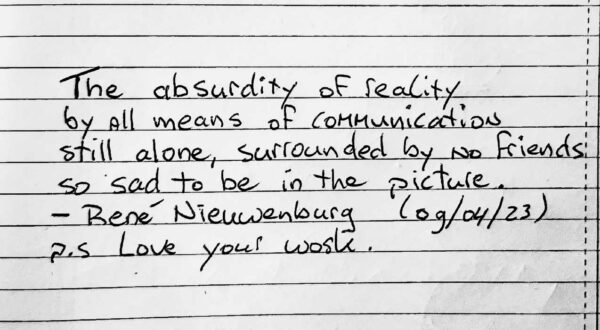 The absurdity of reality
by all means of communication
still alone, surrounded by no friends
so sad to be in the picture.
- René Nieuwenburg (09/04/23)
p.s Love your work.